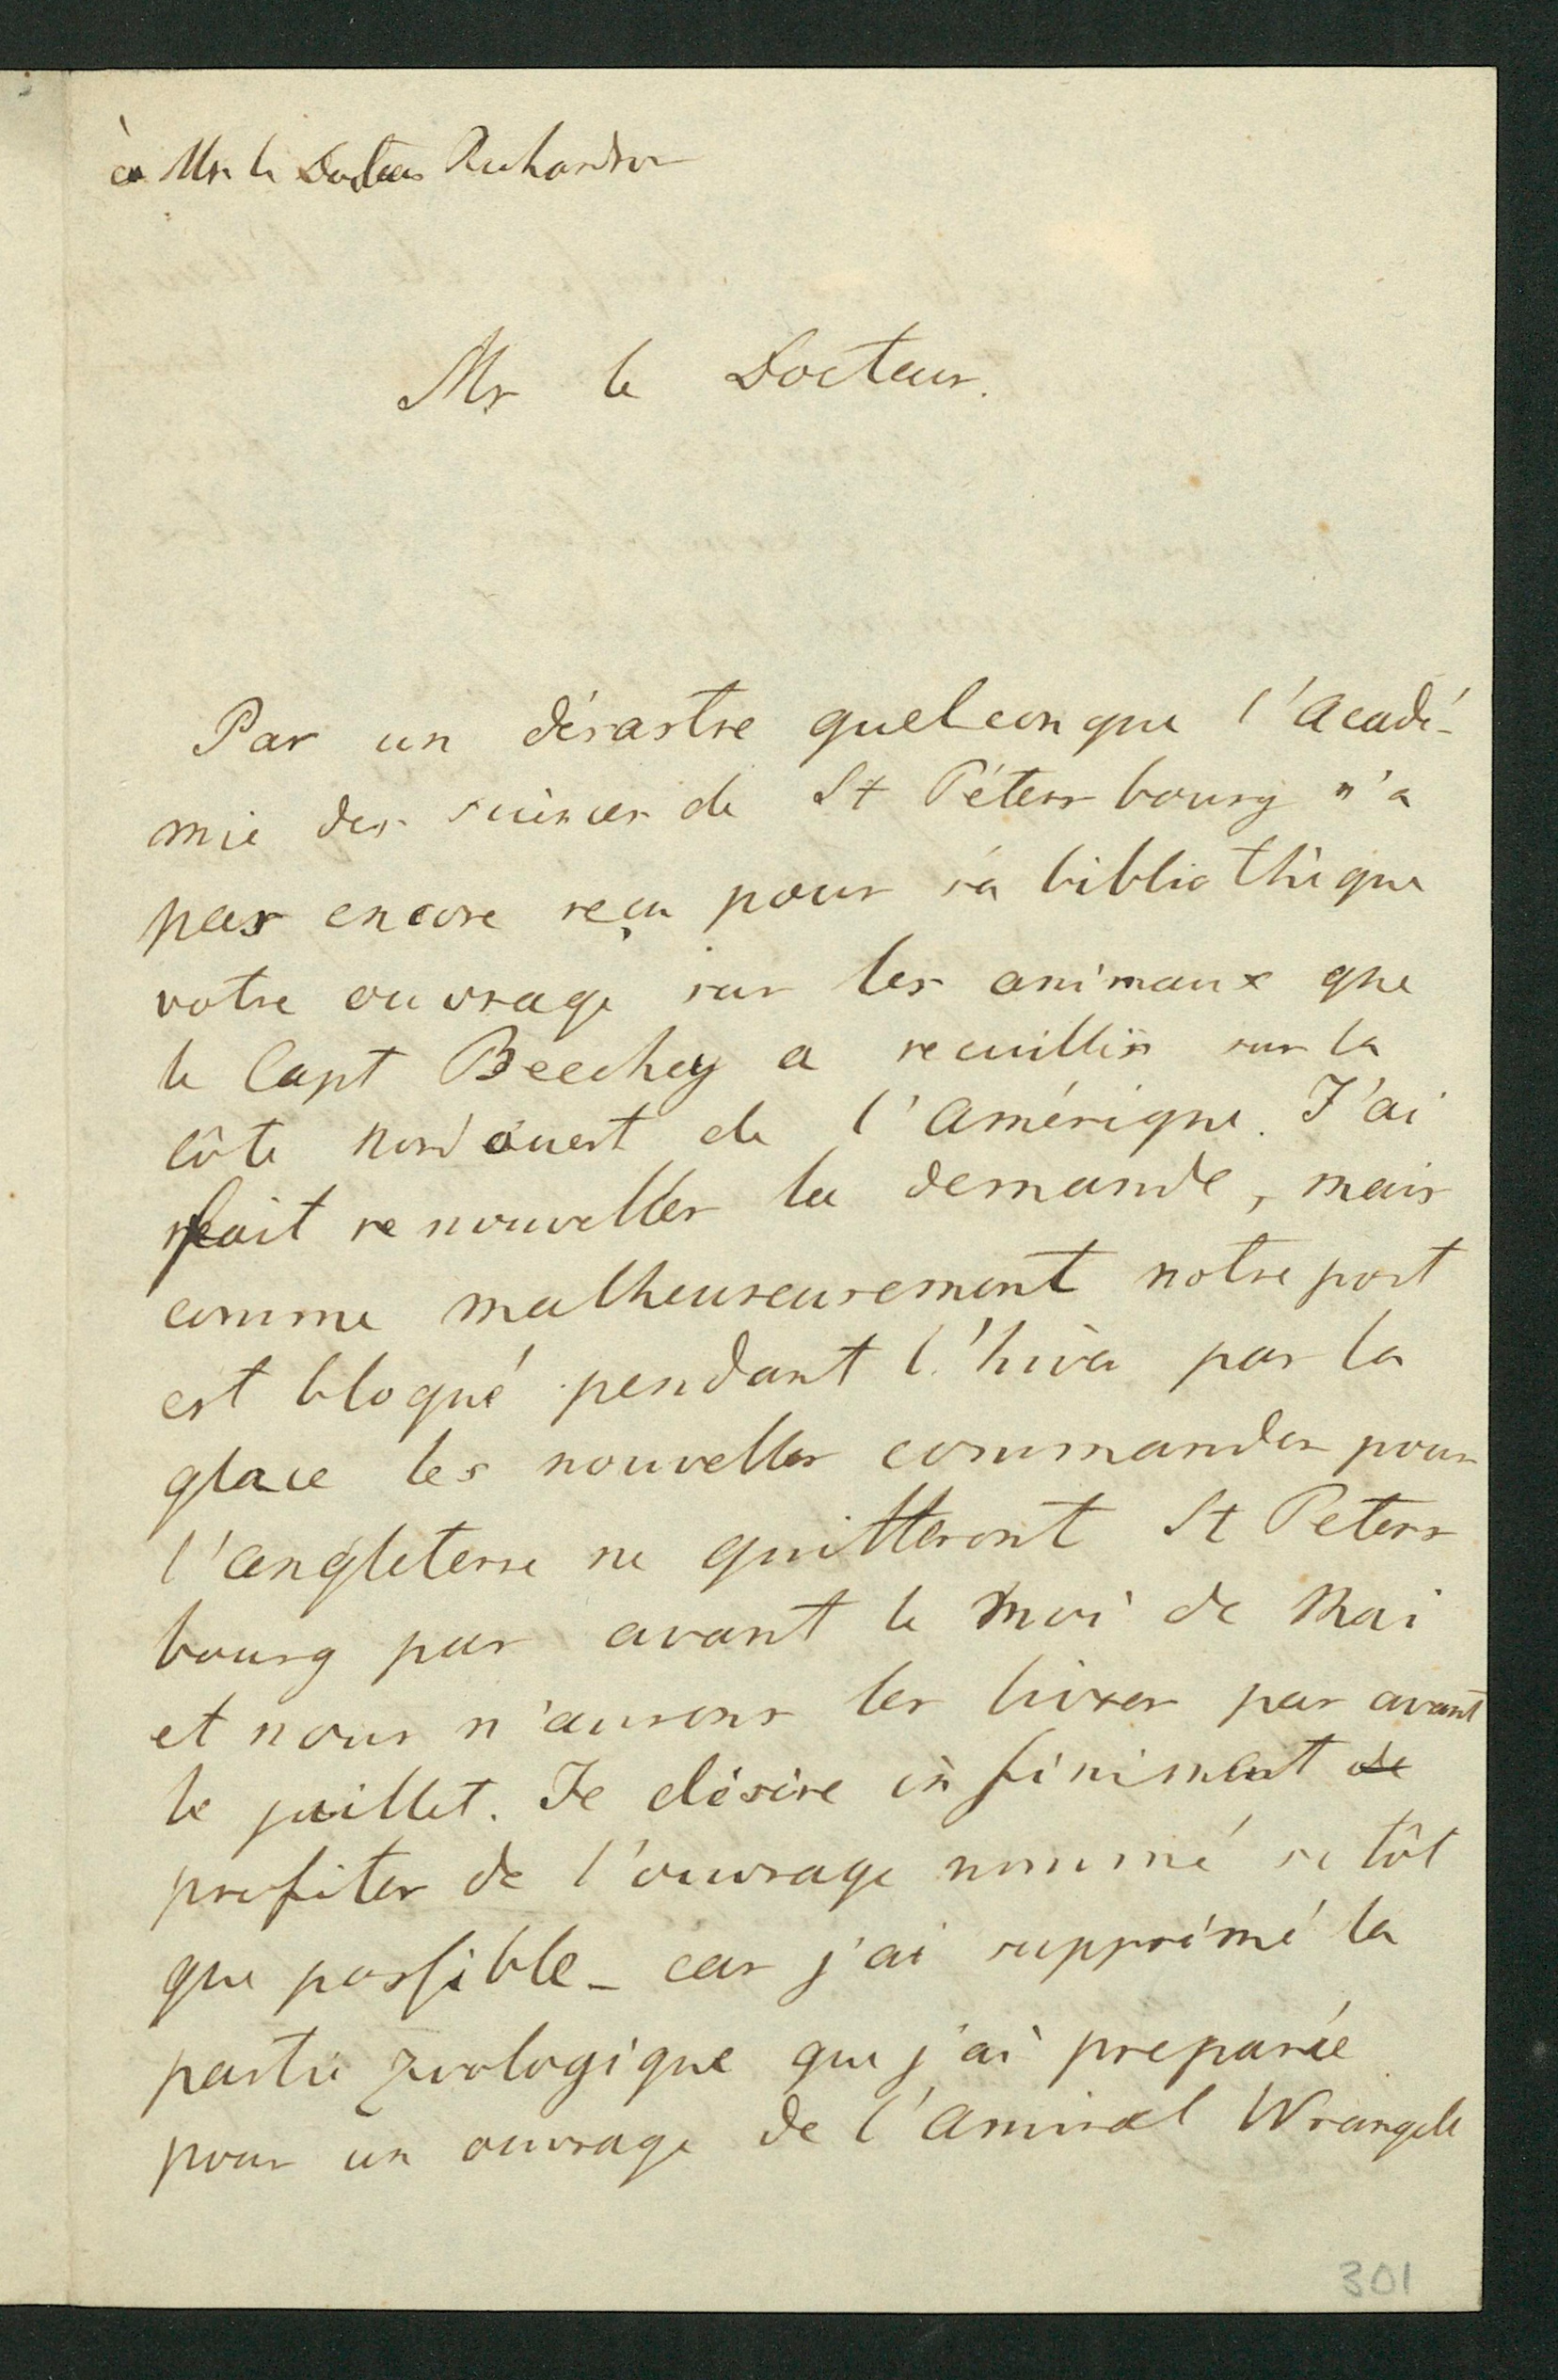 à Mr le Docteur Richardson
Mr le Docteur.
Par un désastre quelconque l'Acadé-
mie des sciences de St Pétersbourg n'a
pas encore reçu pour sa bibliothèque
votre ouvrage sur les animaux que
le Capt Beechey a recuillis sur la
côte nord ouest de l'Amérique. J'ai
fait renouveller la demande, mais
comme malheureusement notre port
est bloqué pendant l'hiver par la
glace les nouvelles commandes pour
l'angleterre ne quitteront St Peters
bourg pas avant le moi de Mai
et nous n'aurons les livres pas avant
le juillet. Je désire infiniment de
profiter de l'ouvrage nommé si tôt
que possible - car j'ai supprimé la
partie zoologique que j'ai preparée
pour un ouvrage de l'Amiral Wrangell
301